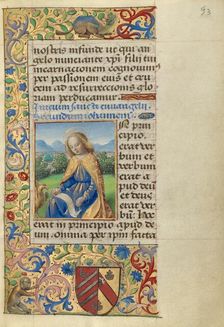 53
nostris infunde ut qui an
gelo nunciante xpi filii tui
incarnationem cognovim
per passionem eius et cru
cem ad resurrectionis glo
riam perducamur
Inicium sancti euuangelii
secundum iohannem
In principio
erat ver
bum et
verbum
erat apud
deu et deus
erat ver
bu. Hoc
erat in principio apud de
um. Omnia per ipm facta